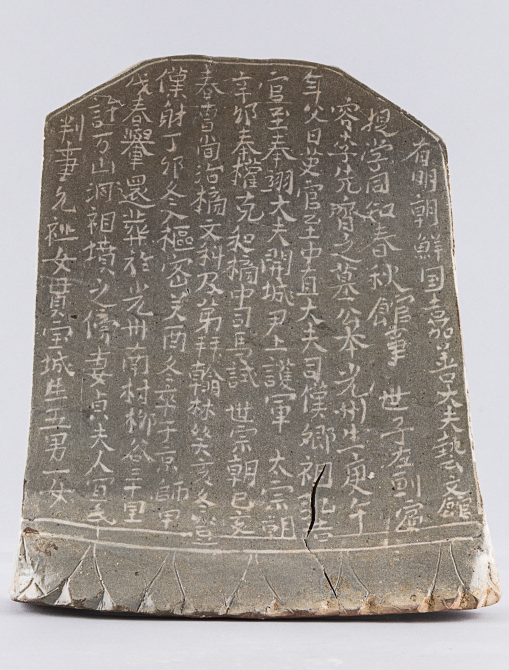 有明朝鮮国嘉善大夫藝文館
提学同知春秋館事 世子左副賓
客李先齊之墓公本光州生庚午
年父日英官至中直大夫司僕卿祖弘吉
官至奉翊大夫開城尹上護軍 太宗朝
辛卯奉權克和榜中司馬試 世宗朝己亥
春曹尚治榜文科及第拜翰林癸亥冬登
僕射丁卯冬入樞密美南冬卒于京師甲
戌春轝還葬於光州南村柳谷三十里
許万山洞祖墳之傍妻貞夫人宣氏
判事允祉女貫宝城生五男一女